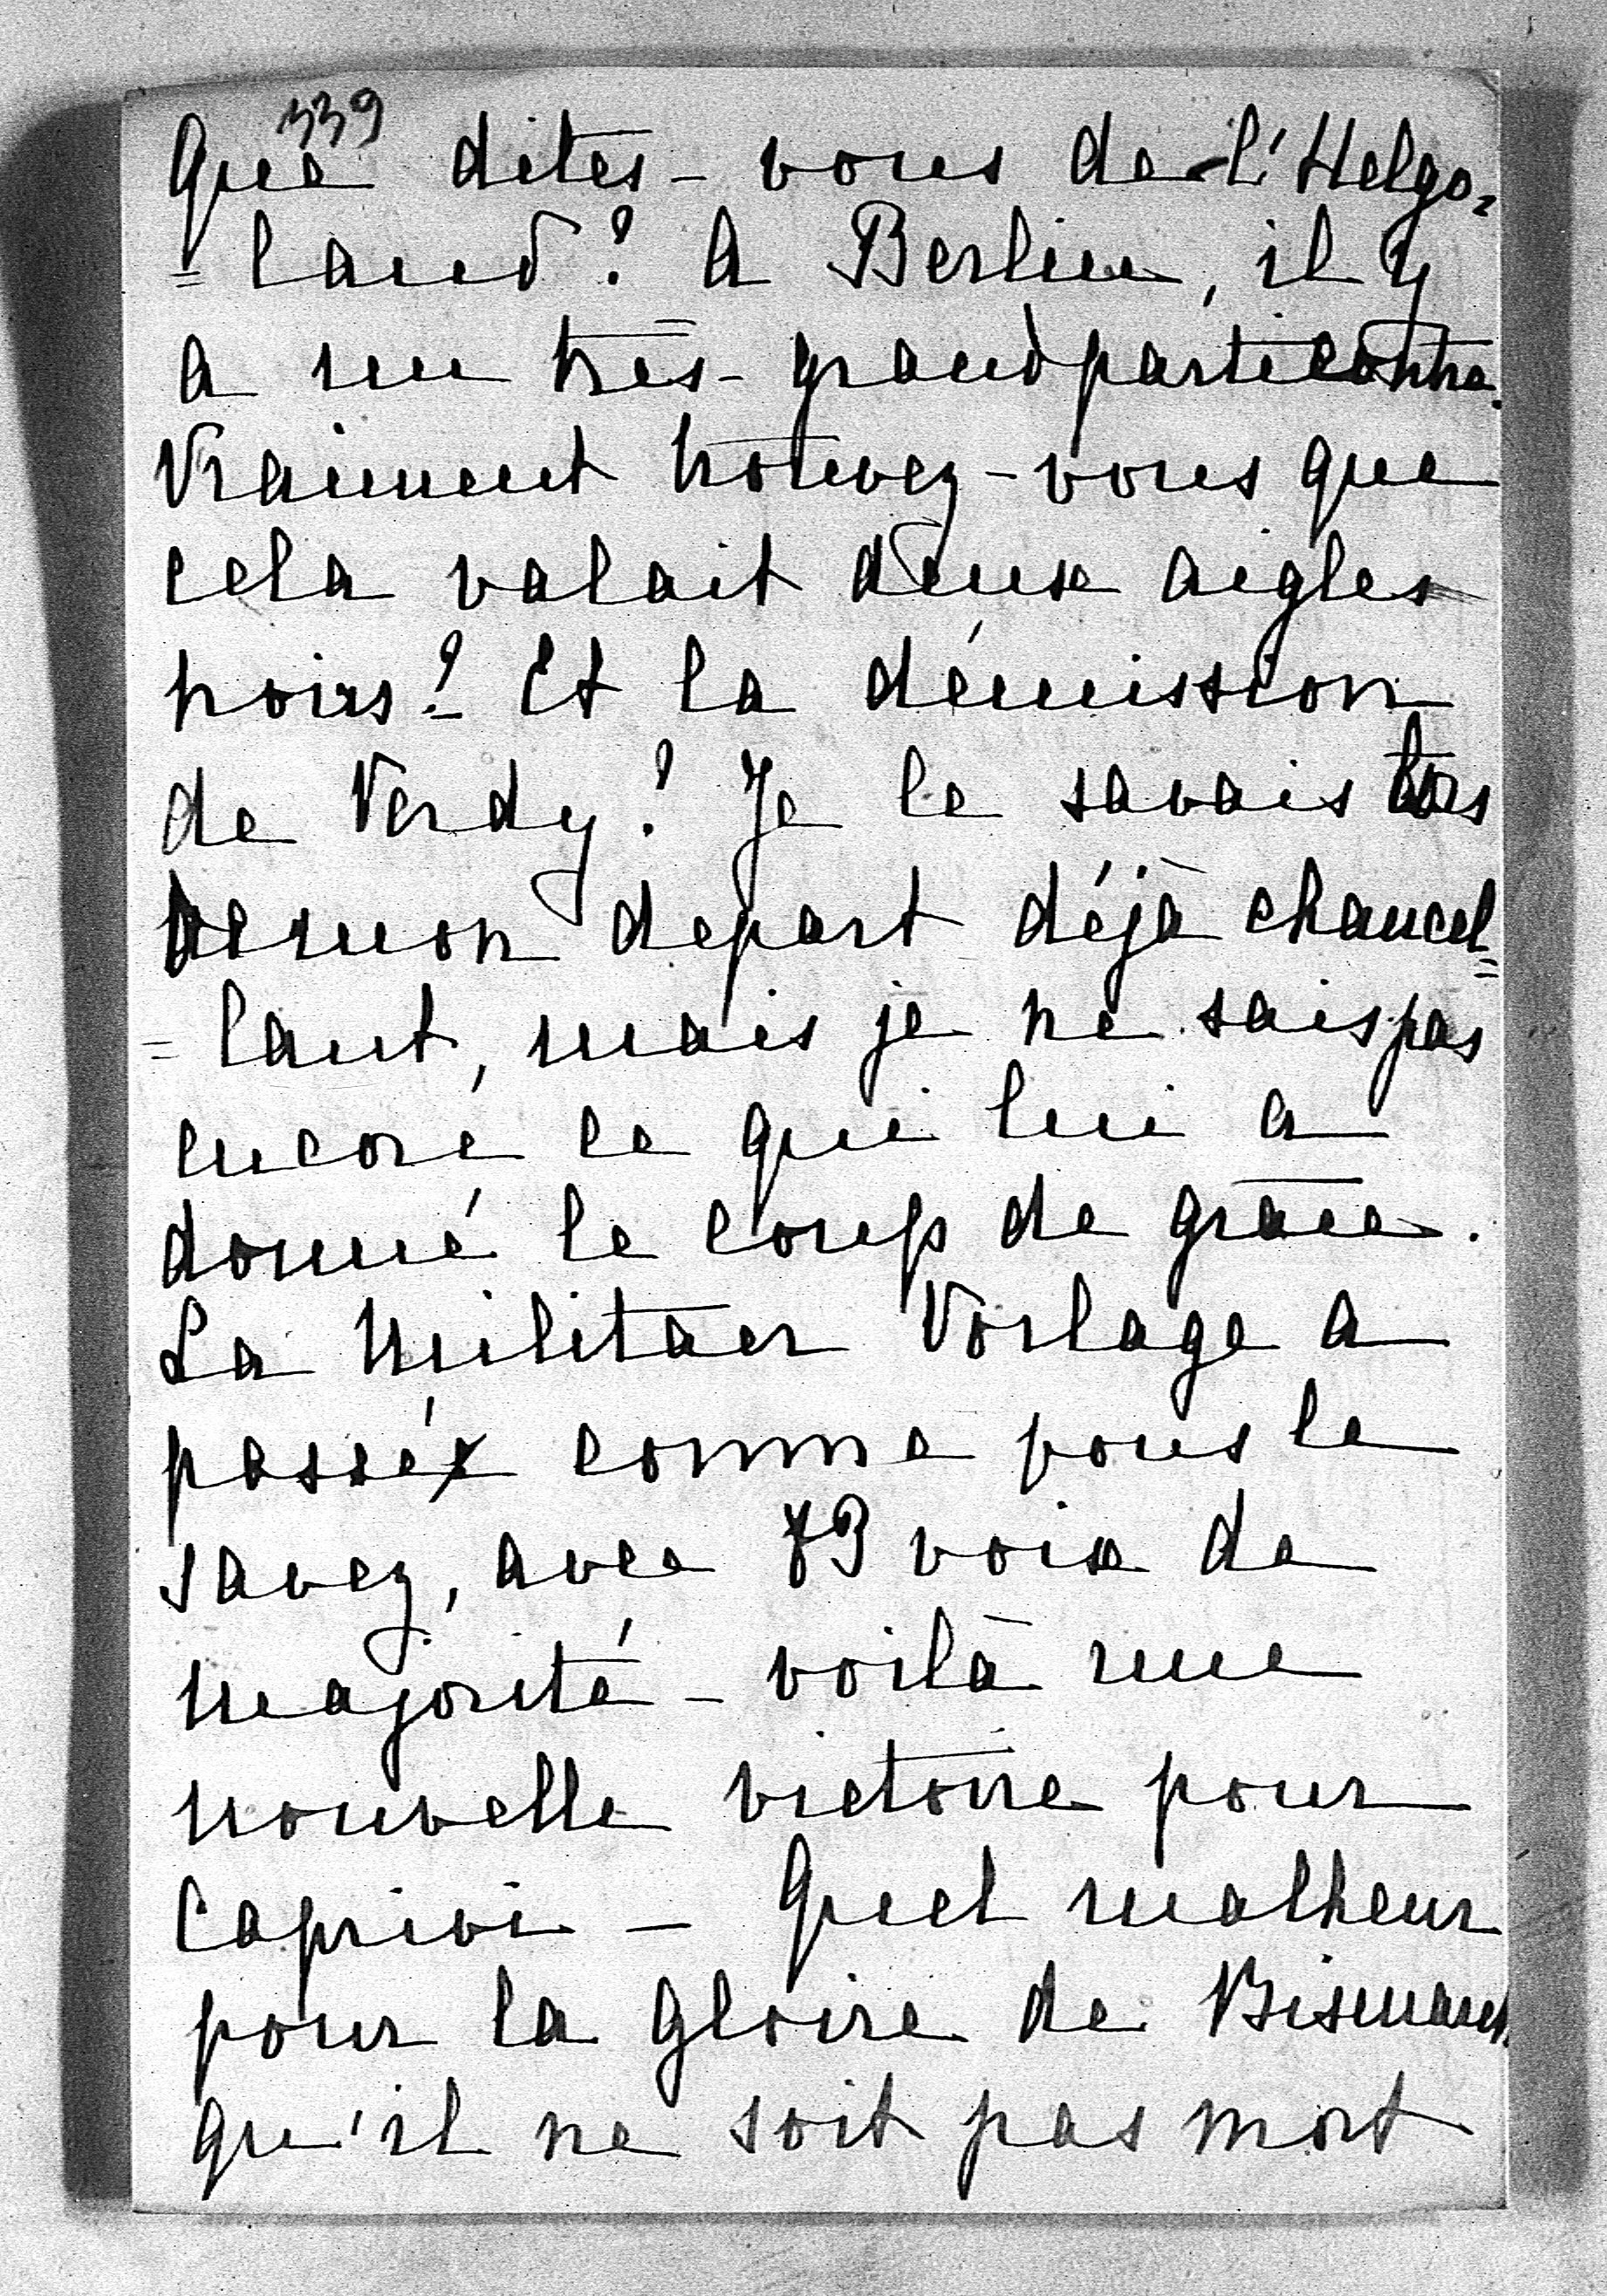 339
Que dites-vous de l'Helgo=
=land? A Berlin, il y
a un très-grand parti contre.
Vraiment trouvez-vous que
cela valait deux aigles
noirs? Et la démission
de Verdy? Je le savais lors
de mon depart déjà chancel=
=lant, mais je ne sais pas
encore ce qui lui a
donné le coup de grâce.
La Militaer Vorlage a
passé comme vous le
savez, avec 73 voix de
majorité - voilà une
nouvelle victoire pour
Caprivi - Quel malheur
pour la gloire de Bismarck
qu'il ne soit pas mort